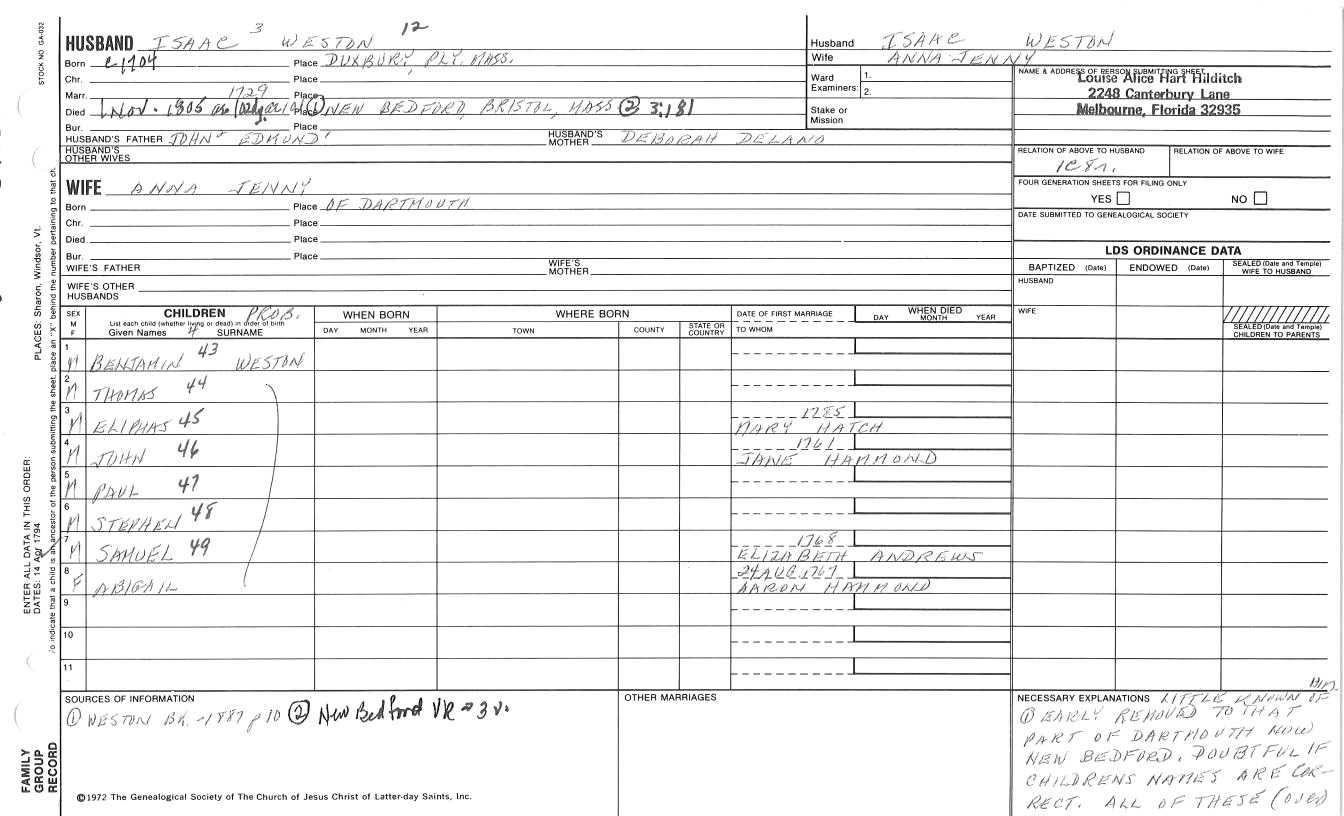 STOCK NO GA-032
3 12
HUSBAND ISAAC WESTON
Born c1704 Place DUXBURY, PLY. MASS.
Chr. Place
Marr. 1729 Place
Died 1 Nov. 1805 Place ① NEW BEDFORD, BRISTOL, MASS ② 3:181
Bur. Place
HUSBAND'S FATHER JOHN² EDMUND¹ HUSBAND'S MOTHER DEBORAH DELANO
HUSBAND'S OTHER WIVES
WIFE ANNA JENNY
Born Place OF DARTMOUTH
Chr. Place
Died Place
Bur. Place
WIFE'S FATHER WIFE'S MOTHER
WIFE'S OTHER HUSBANDS
Husband ISAAC WESTON
Wife ANNA JENNY
Ward Examiners: 1.
2.
Stake or Mission
NAME & ADDRESS OF PERSON SUBMITTING SHEET
Louise Alice Hart Hilditch
2248 Canterbury Lane
Melbourne, Florida 32935
RELATION OF ABOVE TO HUSBAND RELATION OF ABOVE TO WIFE
1C8r.
FOUR GENERATION SHEETS FOR FILING ONLY
YES NO
DATE SUBMITTED TO GENEALOGICAL SOCIETY
LDS ORDINANCE DATA
BAPTIZED (Date) ENDOWED (Date) SEALED (Date and Temple) WIFE TO HUSBAND
HUSBAND
WIFE
SEALED (Date and Temple) CHILDREN TO PARENTS
SEX M F
CHILDREN PROB.
List each child (whether living or dead) in order of birth
Given Names 4 SURNAME
WHEN BORN
DAY MONTH YEAR
WHERE BORN
TOWN COUNTY STATE OR COUNTRY
DATE OF FIRST MARRIAGE
TO WHOM
WHEN DIED
DAY MONTH YEAR
1 M BENJAMIN 43 WESTON
2 M THOMAS 44
3 M ELIPHAS 45 1785
MARY HATCH
4 M JOHN 46 1761
JANE HAMMOND
5 M PAUL 47
6 M STEPHEN 48
7 M SAMUEL 49 1768
ELIZABETH ANDREWS
8 F ABIGAIL 24 AUG. 1767
AARON HAMMOND
9
10
11
SOURCES OF INFORMATION
① WESTON BK. -1887 p 10 ② New Bedford VR # 3 v.
OTHER MARRIAGES
NECESSARY EXPLANATIONS LITTLE KNOWN OF HIM.
① EARLY REMOVED TO THAT
PART OF DARTMOUTH NOW
NEW BEDFORD. DOUBTFUL IF
CHILDRENS NAMES ARE COR-
RECT. ALL OF THESE (over
©1972 The Genealogical Society of The Church of Jesus Christ of Latter-day Saints, Inc.
FAMILY GROUP RECORD
ENTER ALL DATA IN THIS ORDER:
DATES: 14 Apr 1794
PLACES: Sharon, Windsor, Vt.
To indicate that a child is an ancestor of the person submitting the sheet, place an "X" behind the number pertaining to that ch.